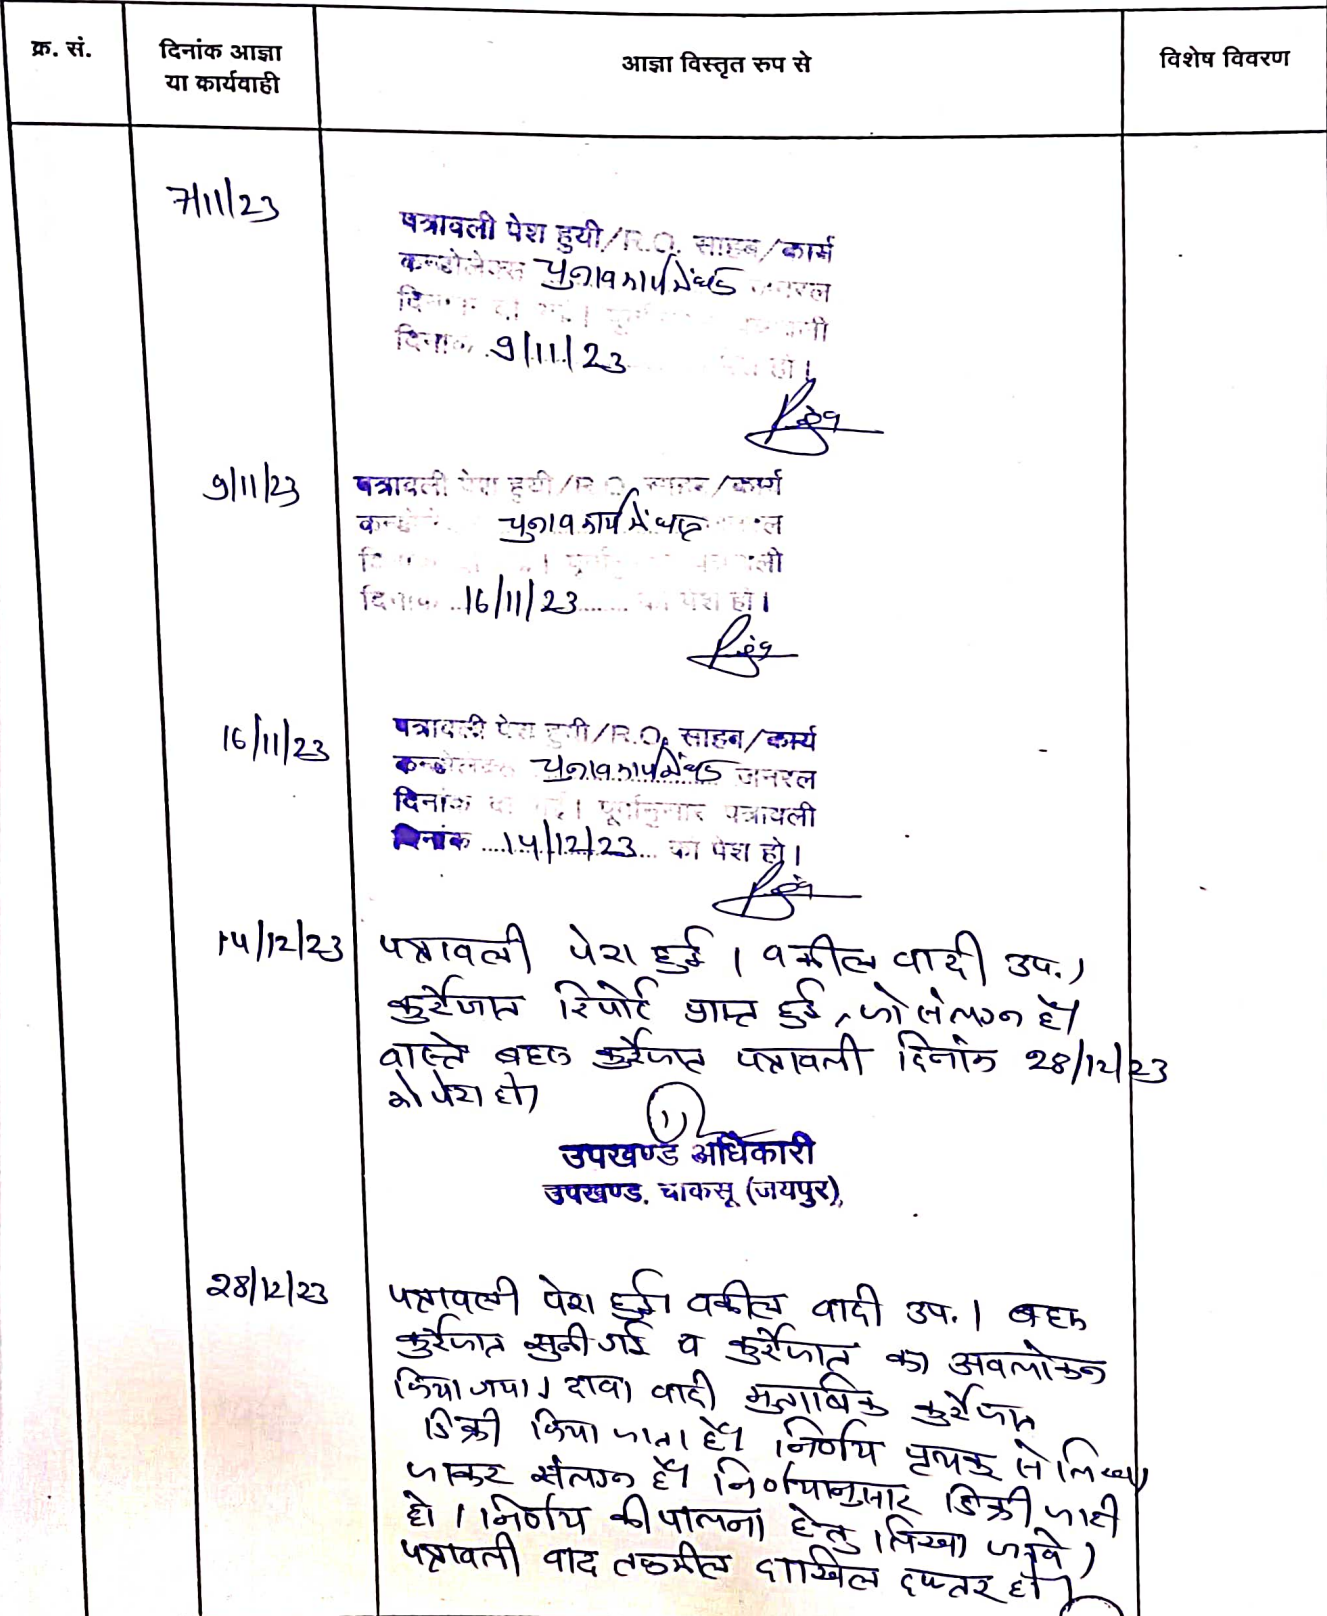 क्र. सं.
दिनांक आज्ञा
या कार्यवाही
आज्ञा विस्तृत रुप से
विशेष विवरण
7/11/23
पत्रावली पेश हुयी/R.O. साहब/कार्य
चुनाव कार्य में व्यस्त जनरल
दिनांक
दिनांक 9/11/23 पेश हो।
9/11/23
पत्रावली पेश हुयी/R.O. साहब/कार्य
चुनाव कार्य में व्यस्त
पूर्वानुसार पत्रावली
दिनांक 16/11/23 को पेश हो।
16/11/23
पत्रावली पेश हुयी/R.O. साहब/कार्य
चुनाव कार्य में व्यस्त जनरल
दिनांक पूर्वानुसार पत्रावली
दिनांक 14/12/23 को पेश हो।
14/12/23
पत्रावली पेश हुई। वकील वादी उप.।
कुर्रेजात रिपोर्ट प्राप्त हुई, जो संलग्न है।
वास्ते बहस कुर्रेजात पत्रावली दिनांक 28/12/23
को पेश हो।
उपखण्ड अधिकारी
उपखण्ड. चाकसू (जयपुर)
28/12/23
पत्रावली पेश हुई। वकील वादी उप.। बहस
कुर्रेजात सुनी गई व कुर्रेजात का अवलोकन
किया गया। दावा वादी मुताबिक कुर्रेजात
डिक्री किया जाता है। निर्णय पृथक से लिखा
जाकर संलग्न है। निर्णयानुसार डिक्री जारी
हो। निर्णय की पालना हेतु लिखा जावे।
पत्रावली बाद तकमील दाखिल दफ्तर हो।